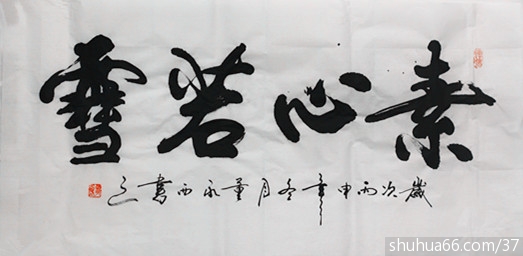 素心若雪
歲次丙申年冬月董永西書之
shuhua66.com/37